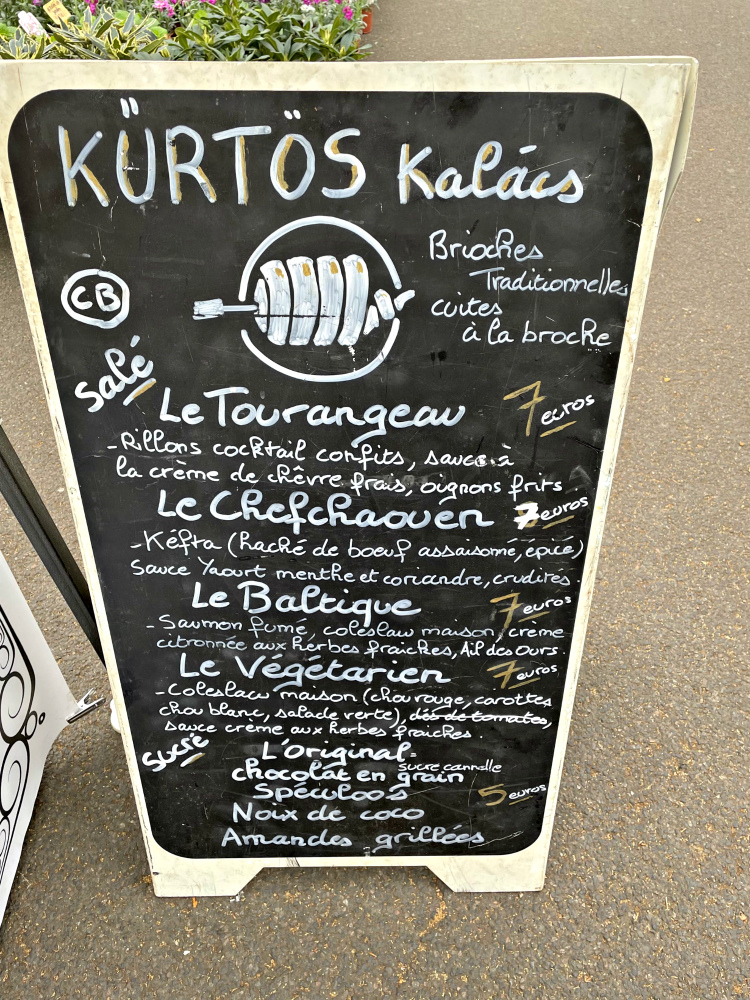 KÜRTÖS Kalács
Brioches
Traditionnelles
cuites
à la broche
CB
Salé
Le Tourangeau 7 euros
-Rillons cocktail confits, sauce à
la crème de chêvre frais, oignons frits
Le Chefchaouen 7 euros
-Kéfta (haché de boeuf assaisonné, épicé)
Sauce Yaourt menthe et coriandre, crudites.
Le Baltique 7 euros
-Saumon fumé, coleslaw maison, crème
citronnée aux herbes fraiches, Ail des Ours.
Le Végétarien 7 euros
-Coleslaw maison (chou rouge, carottes
chou blanc, salade verte), dés de tomates,
sauce crème aux herbes fraiches.
Sucré
L'Original-
sucre cannelle
chocolat en grain
Spéculoos 5 euros
Noix de coco
Amandes grillées